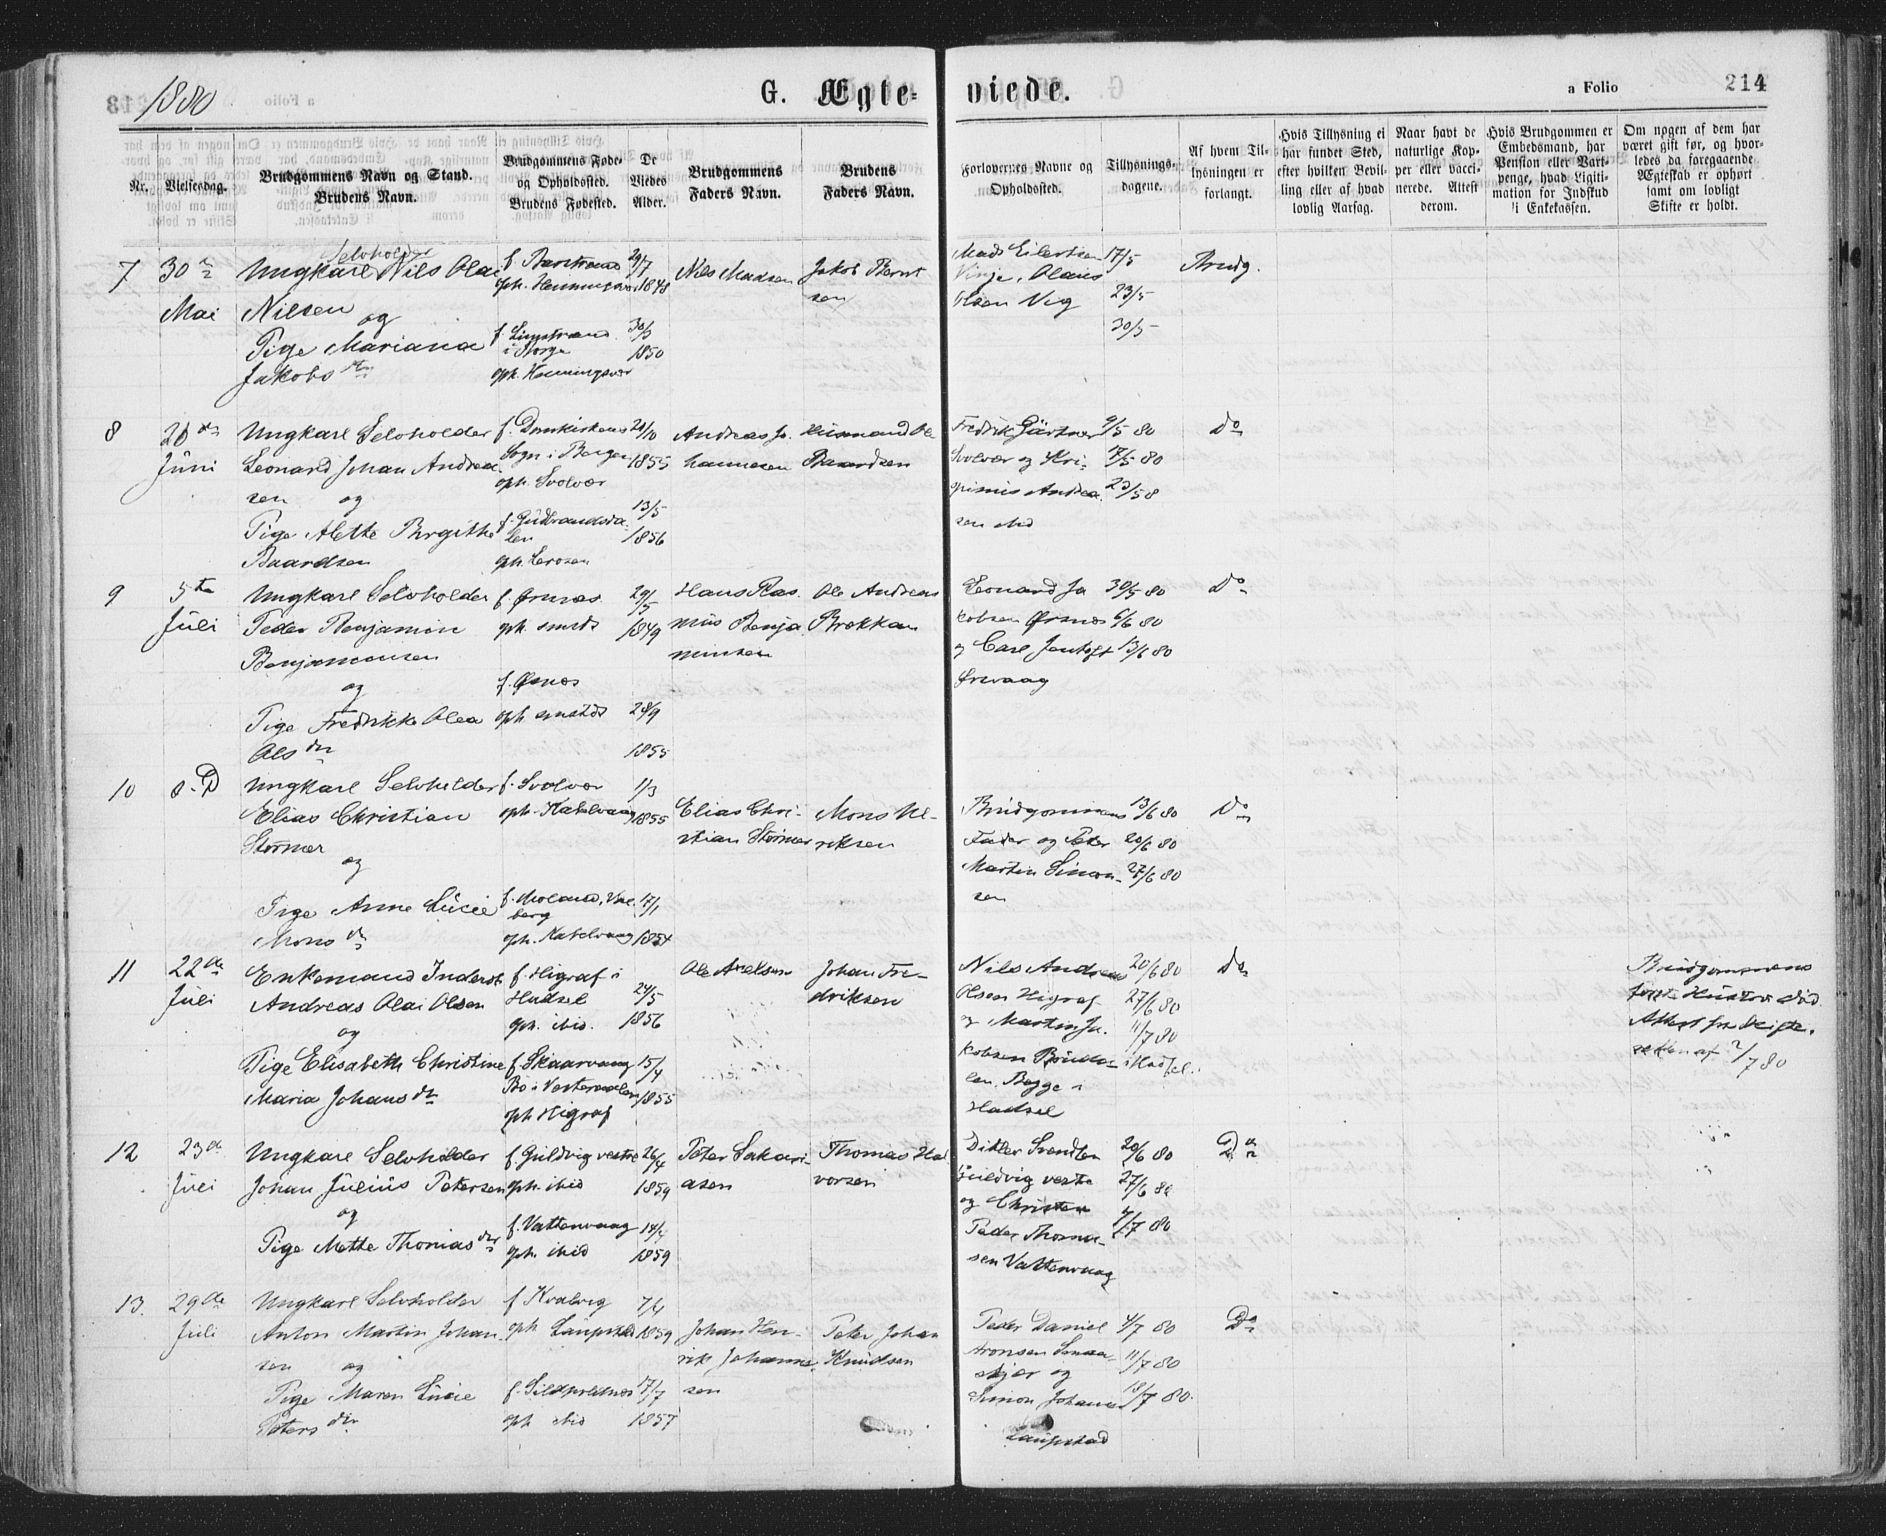 1880
G. Ægte-
viede.
a Folio
214
Nr.
Vielsesdag.
Brudgommens Navn og Stand.
Brudens Navn.
Brudgommens Føde-
og Opholdssted.
Brudens Fødested.
De
Viedes
Alder.
Brudgommens
Faders Navn.
Brudens
Faders Navn.
Forlovernes Navne og
Opholdssted.
Tillysnings-
dagene.
Af hvem Til-
lysningen er
forlangt.
Hvis Tillysning ei
har fundet Sted,
efter hvilken Bevil-
ling eller af hvad
lovlig Aarsag.
Naar havt de
naturlige Kop-
per eller vacci-
nerede. Attest
derom.
Hvis Brudgommen er
Embedsmand, har
Pension eller Vart-
penge, hvad Legiti-
mation for Indskud
i Enkekassen.
Om nogen af dem har
været gift før, og hvor-
ledes da foregaaende
Ægteskab er ophørt
samt om lovligt
Skifte er holdt.
7
30
Mai
Selvholder
Ungkarl Nils Olai
Nilsen
og
Pige Mariana
Jakobs
oph. Henningsvær
29/7
1848
30/3
1850
Nils Madsen
Jakob Bernt
sen
Mads Eilertsen
Vinje, Olaus
Olsen Vig
17/5
23/5
30/5
Brudg.
8
Juni
Ungkarl Selvholder
Leonard Johan Andrea
sen og
Pige Alette Birgithe
Baardsen
f. Domkirkens
Sogn i Bergen
oph. Svolvær
f. Gudbrandsda
len
20/10
1855
13/5
1856
Andreas Jo
hannesen
Husmand Ole
Baardsen
Fredrik Gärtner
Svolvær og Kri-
spinus Andrea
sen ibid
9/5 80
17/5 80
23/5 8
Do
9
5te
Juli
Ungkarl Selvholder
Peder Benjamin
Benjaminsen
og
Pige Fredrikke Olea
Ols dtr
f. Ørsnæs
oph. smsts
f. Øsnæs
oph smstds
29/5
1849
28/9
1855
Hans Ras
mus Benja
minsen
Ole Andreas
Brekkan
Leonard Ja
kobsen Ørsnæs
og Carl Jentoft
Ørsvaag
30/5 80
6/6 80
13/6 80
Do
10
s. D
Ungkarl Selvholder
Elias Christian
Størmer
og
Pige Anne Lucie
Mons dtr
f. Svolvær
oph. Kabelvaag
f. Moland, Val
berg
oph. Kabelvaag
1/3
1855
17/1
1854
Elias Chri-
stian Størmer
Mons He-
riksen
Brudgommens
Fader og Peter
Martin Simon-
sen
13/6 80
20/6 80
27/6 80
Do
11
22de
Juli
Enkemand Inderst
Andreas Olai Olsen
og
Pige Elisabeth Christine
Maria Johans dtr
f. Higraf i
Hadsel
oph. ibid.
f. Skaarvaag
Bø i Vesteraalen
oph Higraf
24/5
1856
15/4
1855
Ole Axelsen
Johan Fre-
driksen
Nils Andreas
Olsen Higraf
og Martin Ja
kobsen
i Hadsel.
Hadsel
20/6 80
27/6 80
11/7 80
Do
Brudgommens
første Hustru død.
Attest fra Skifte-
retten af 2/7 80
12
23de
Juli
Ungkarl Selvholder
Johan Julius Petersen
og
Pige Mette Thomas dtr
f. Guldvig vestre
oph. ibid
f. Vattenvaag
oph. ibid
26/4
1859
14/4
1859
Peter Sakari-
asen
Thomas Hal
vorsen
Ditler Svendsen
Guldvig vestre
og Christen
Peder Thoma-
sen Vattenvaag
20/6 80
27/6 80
4/7 80
Do
13.
29de
Juli
Ungkarl Selvholder
Anton Martin Johan
sen og
Pige Maren Lucie
Peters dtr
f Kvalvig
oph Laupstad
f. Sildpoldnes
oph ibid
7/4
1859
17/7
1857
Johan Hen-
rik Johanne-
sen
Peter Johan
Knudsen
Peder Daniel
Aronsen
skjær og
Simon Johansen
Laupstad
4/7 80
11/7 80
18/7 80.
Do